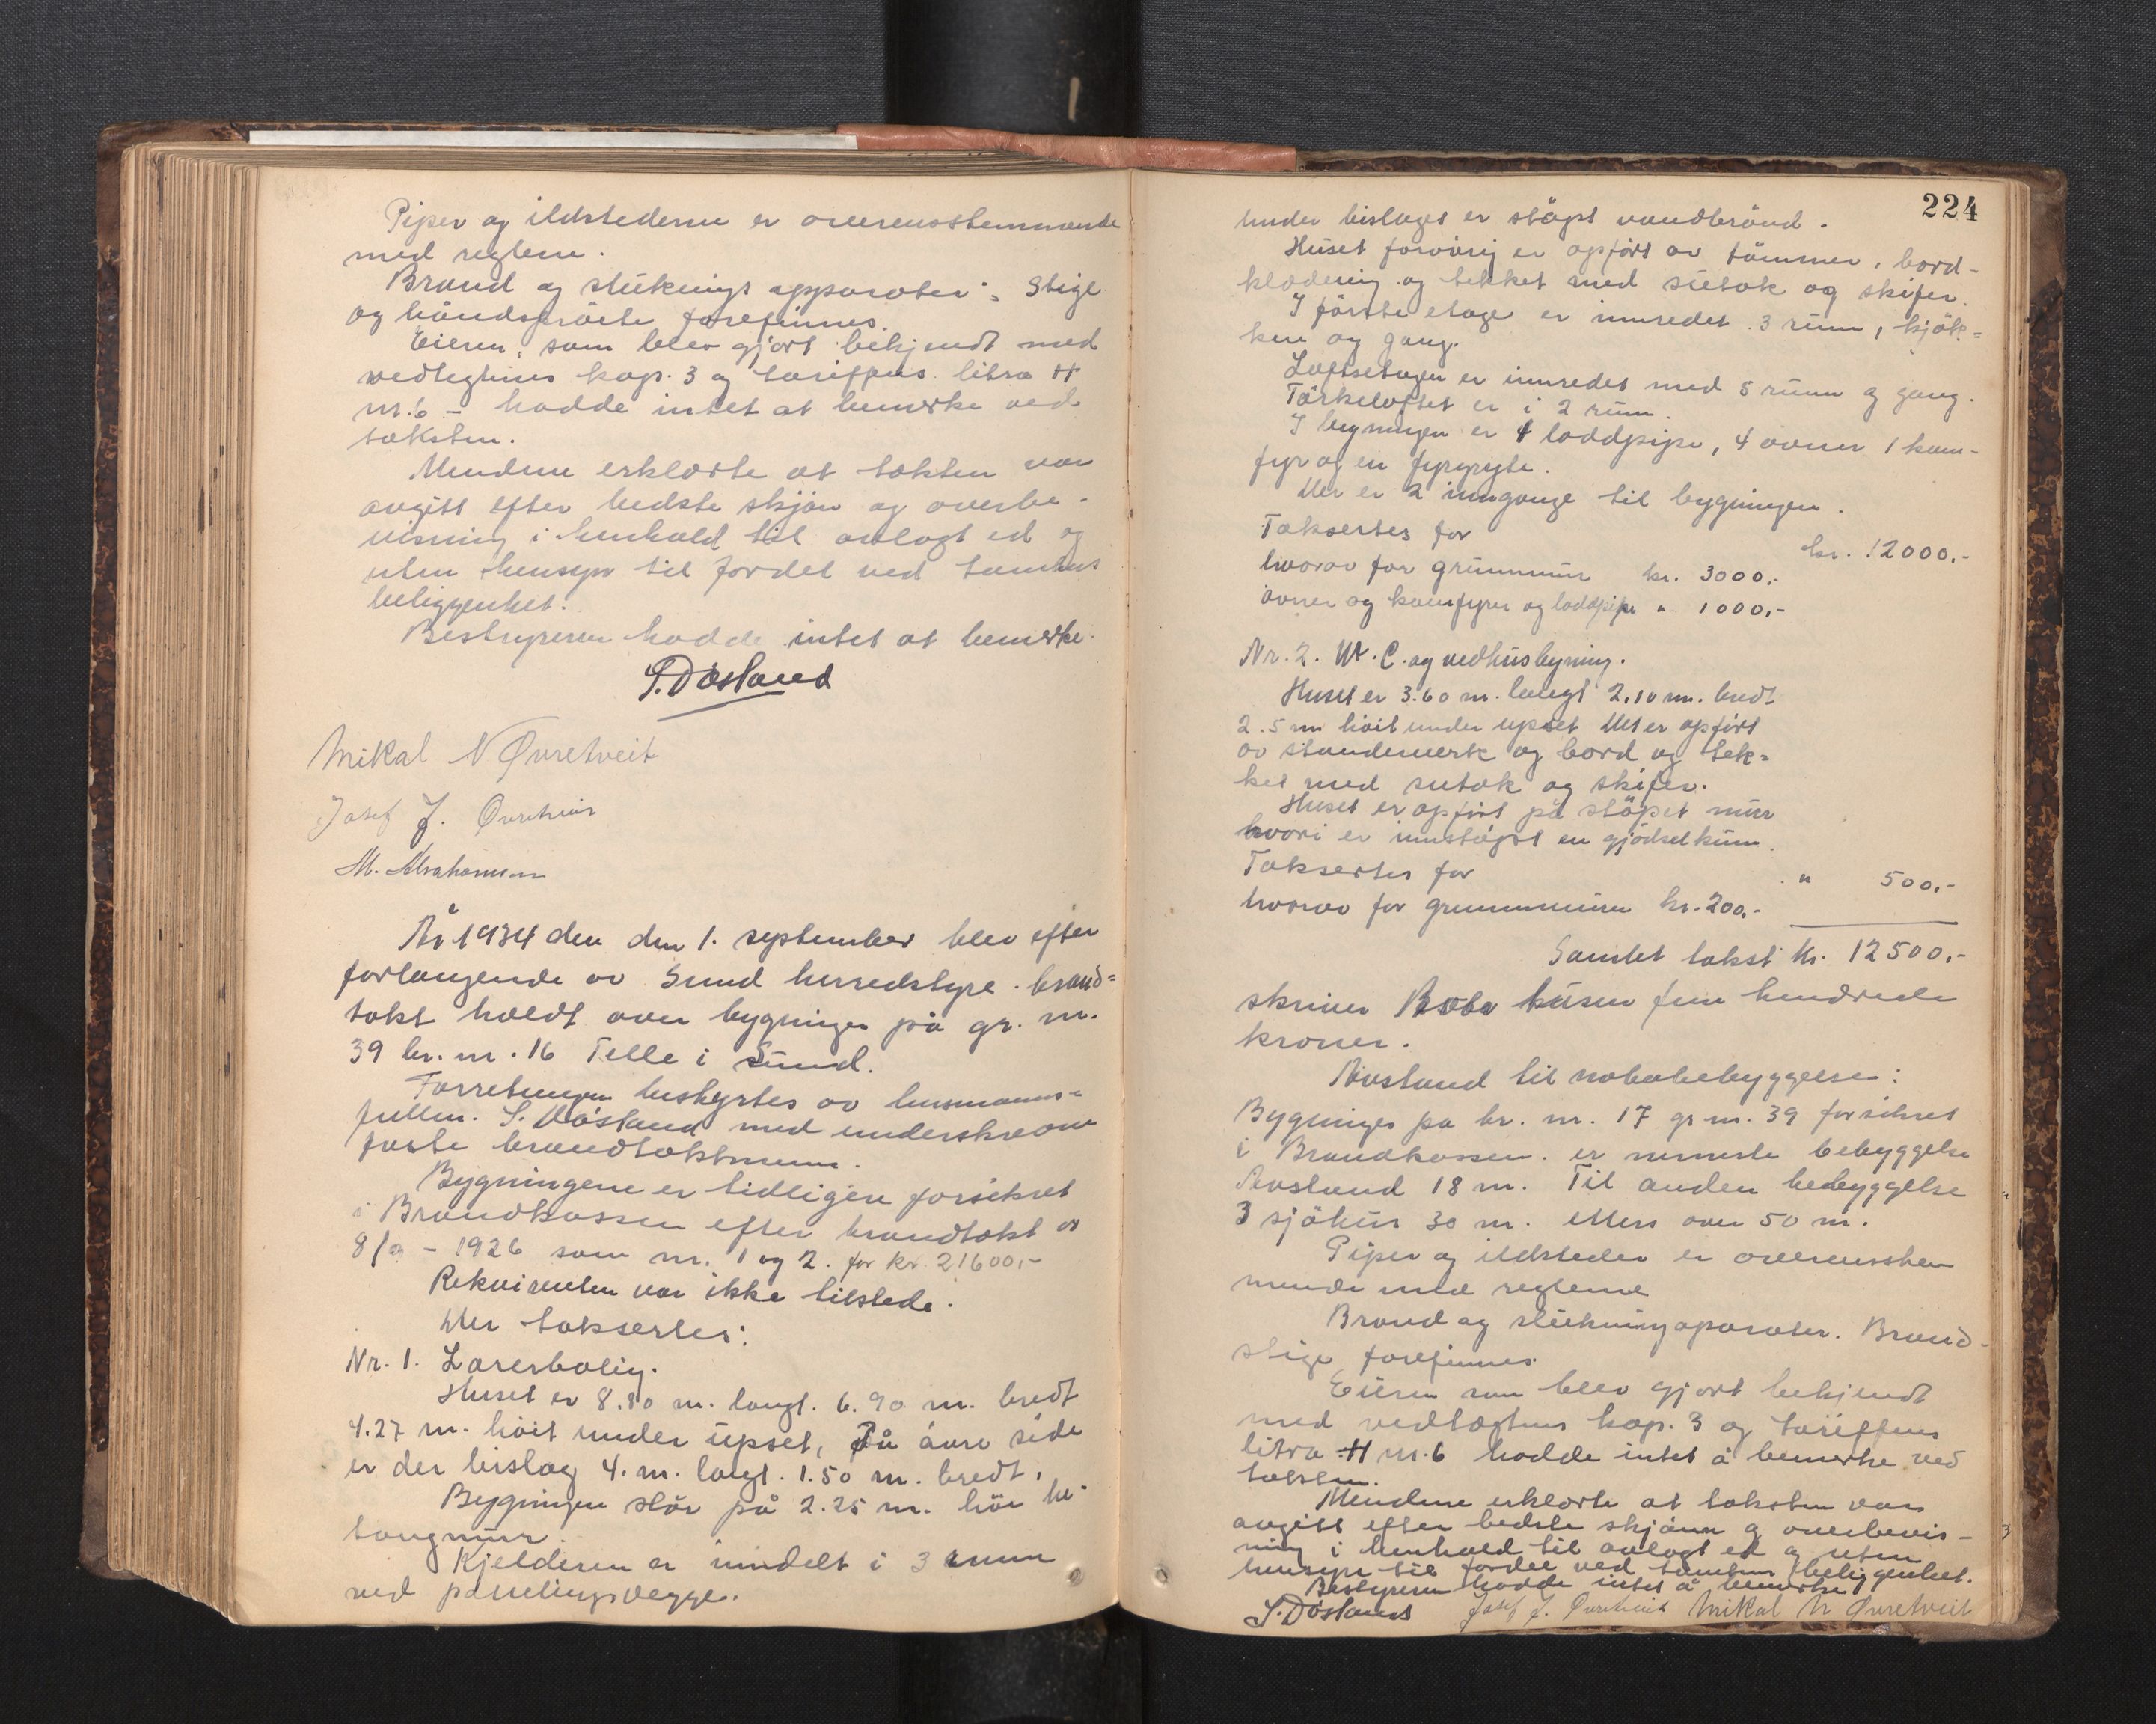 Piper og ildstederne er overensstemmende
med reglene.
Brand og slukningsapparater: Stige
og håndsprøite forefinnes.
Eieren, som blev gjort bekjendt med
vedtegtenes kap. 3 og tariffens litra H
nr. 6 - hadde intet at bemerke ved
taksten.
Mendene erklærte at taksten var
avgitt efter bedste skjøn og overbe-
visning i henhold til avlagt ed og
uten hensyn til fordel ved tomtens
beliggenhet.
Bestyreren hadde intet at bemerke.
S. Døsland
Mikal N Øvretveit
Josef J. Øvretveit
M. Abrahamsen
År 1934 den den 1. september blev efter
forlangende av Sund herredstyre brand=
takst holdt over bygninger på gr. nr.
39 br. nr. 16 Telle i Sund.
Forretningen bestyrtes av lensmanns=
fullm. S. Døsland med underskrevne
faste brandtakstmenn.
Bygningene er tidligere forsikret
i Brandkassen efter brandtakst av
8/9 - 1926 som nr. 1 og 2. for kr. 21600,-
Rekvirenten var ikke tilstede.
Der takserter:
Nr. 1. Lærerbolig.
Huset er 8.80 m. langt. 6.90 m. bredt
4.27 m. høit under upset, På øvre side
er der bislag 4. m. langt. 1.50 m. bredt.
Bygningen står på 2.25 m. høi be-
tongmur.
Kjelderen er inndelt i 3 rum
ved panelingsvegge.
224
under bislaget er støpt vandbrønd.
Huset forøvrig er opført av tømmer, bord-
klædning og tekket med sutak og skifer.
I første etage er innredet 3 rum, kjøk=
ken og gang.
Loftsetagen er innredet med 5 rum og gang.
Tørkeloftet er i 2 rum.
I bygningen er 1 loddpipe, 4 ovner 1 kom-
fyr og en fyrgryte.
Der er 2 inngange til bygningen.
Taksertes for kr. 12000,-
hvorav for grunnmur kr. 3000,-
ovner og komfyrer og loddpipe " 1000,-
Nr. 2. W.C. og vedhusbygning.
Huset er 3.60 m. langt 2,10 m. bredt
2.5 m høit under upset Det er opført
av standerverk og bord og tek=
ket med sutak og skifer.
Huset er opført på støpet mur
hvori er innstøpt en gjødselkum.
Taksertes for " 500,-
hvorav for grunnmuren kr. 200,-
Samlet takst kr. 12500,-
skriver tusen fem hundrede
kroner.
Avstand til nabobebyggelse:
Bygninger på br. nr. 17 gr nr. 39 forsikret
i Brandkassen. er nermeste bebyggelse
Avstand 18 m. Til anden bebyggelse
3 sjøhus 30 m. ellers over 50 m.
Piper og ildsteder er overensstem
mende med reglene
Brand og slukningaparater. Brand-
stige forefinnes.
Eieren som blev gjort bekjendt
med vedtægtens kap. 3 og tariffens
litra H nr. 6 hadde intet å bemerke ved
taksten.
Mendene erklærte at taksten var
avgitt efter bedste skjønn og overbevis-
ning i henhold til avlagt ed og uten
hensyn til fordel ved tomtens beligenhet.
Bestyreren hadde intet å bemerke
S. Døsland Josef J. Øvretveit Mikal N Øvretveit